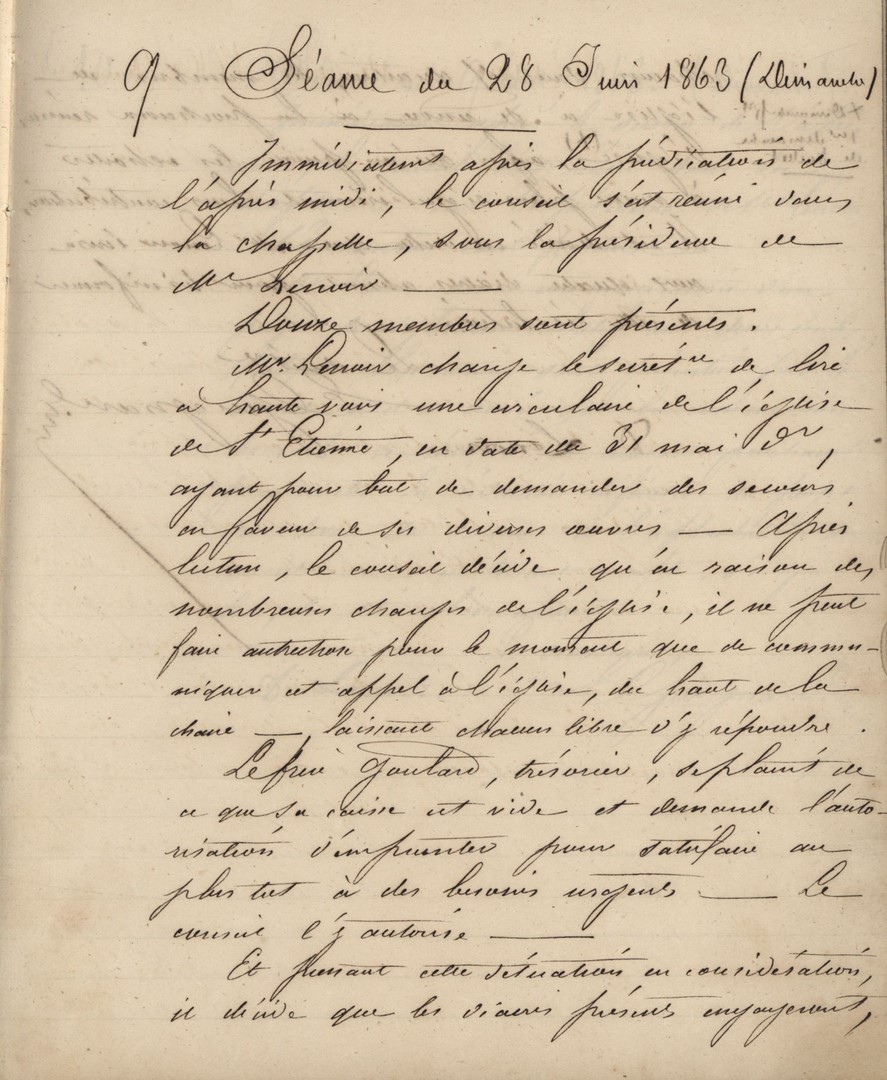 9 Séance du 28 Juin 1863 (Dimanche)
Immédiatemt après la prédication de
l'après midi, le conseil s'est réuni dans
la chapelle, sous la présidence de
Mr Lenoir —
Douze membres sont présents.
Mr. Lenoir charge le secrétre de lire
à haute voix une circulaire de l'église
de St Etienne, en date du 31 mai dr,
ayant pour but de demander des secours
en faveur de ses diverses œuvres — Après
lecture, le conseil décide qu'en raison des
nombreuses charges de l'église, il ne peut
faire autrechose pour le moment que de commu-
niquer cet appel à l'église, du haut de la
chaire — laissant chacun libre d'y répondre.
Le frère Goulard, trésorier, se plaint de
ce que sa caisse est vide et demande l'auto-
risation d'emprunter pour satisfaire au
plus tôt à des besoins urgents — Le
conseil l'y autorise —
Et prenant cette situation en considération,
il décide que les diacres présents engageront,